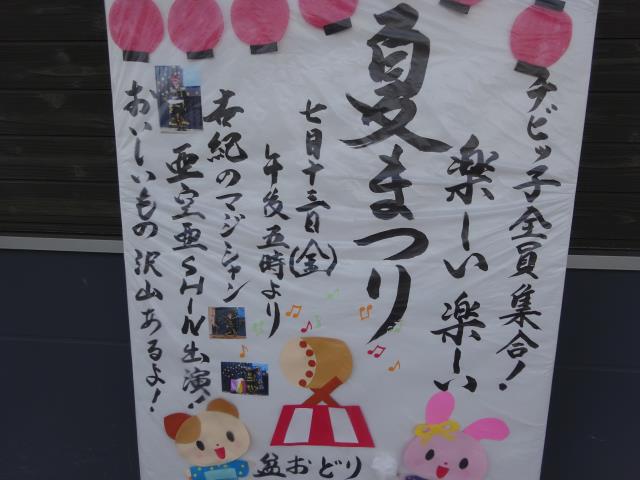 チビッ子全員集合！
楽しい楽しい
夏まつり
七月十三日(金)
午後五時より
右紀のマジシャン
亜空亜SHIN出演!!
おいしいもの沢山あるよ！
盆おどり